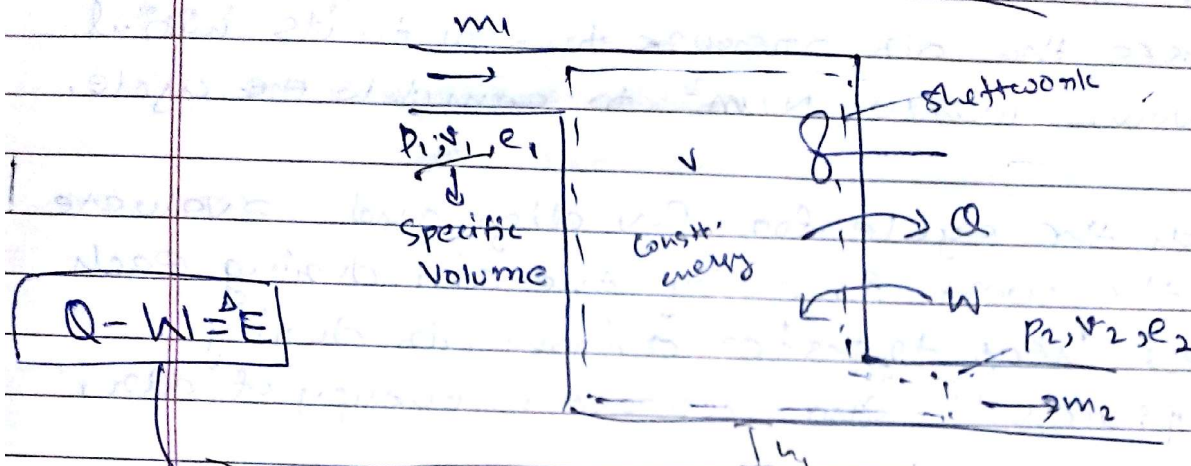 m1
shaftwork
P1, v1, e1
V
Specific
Volume
const.
energy
Q
W
Q - W = ΔE
P2, v2, e2
m2
h1